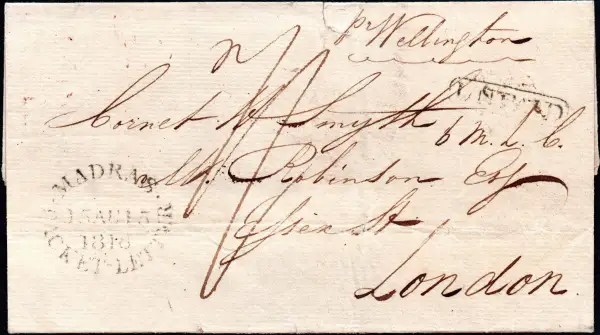 pr Wellington
Cornet W Smyth 6 M. L. C.
Robinson Esq
Essex St
London
MADRAS
1818
PACKET-LETTER